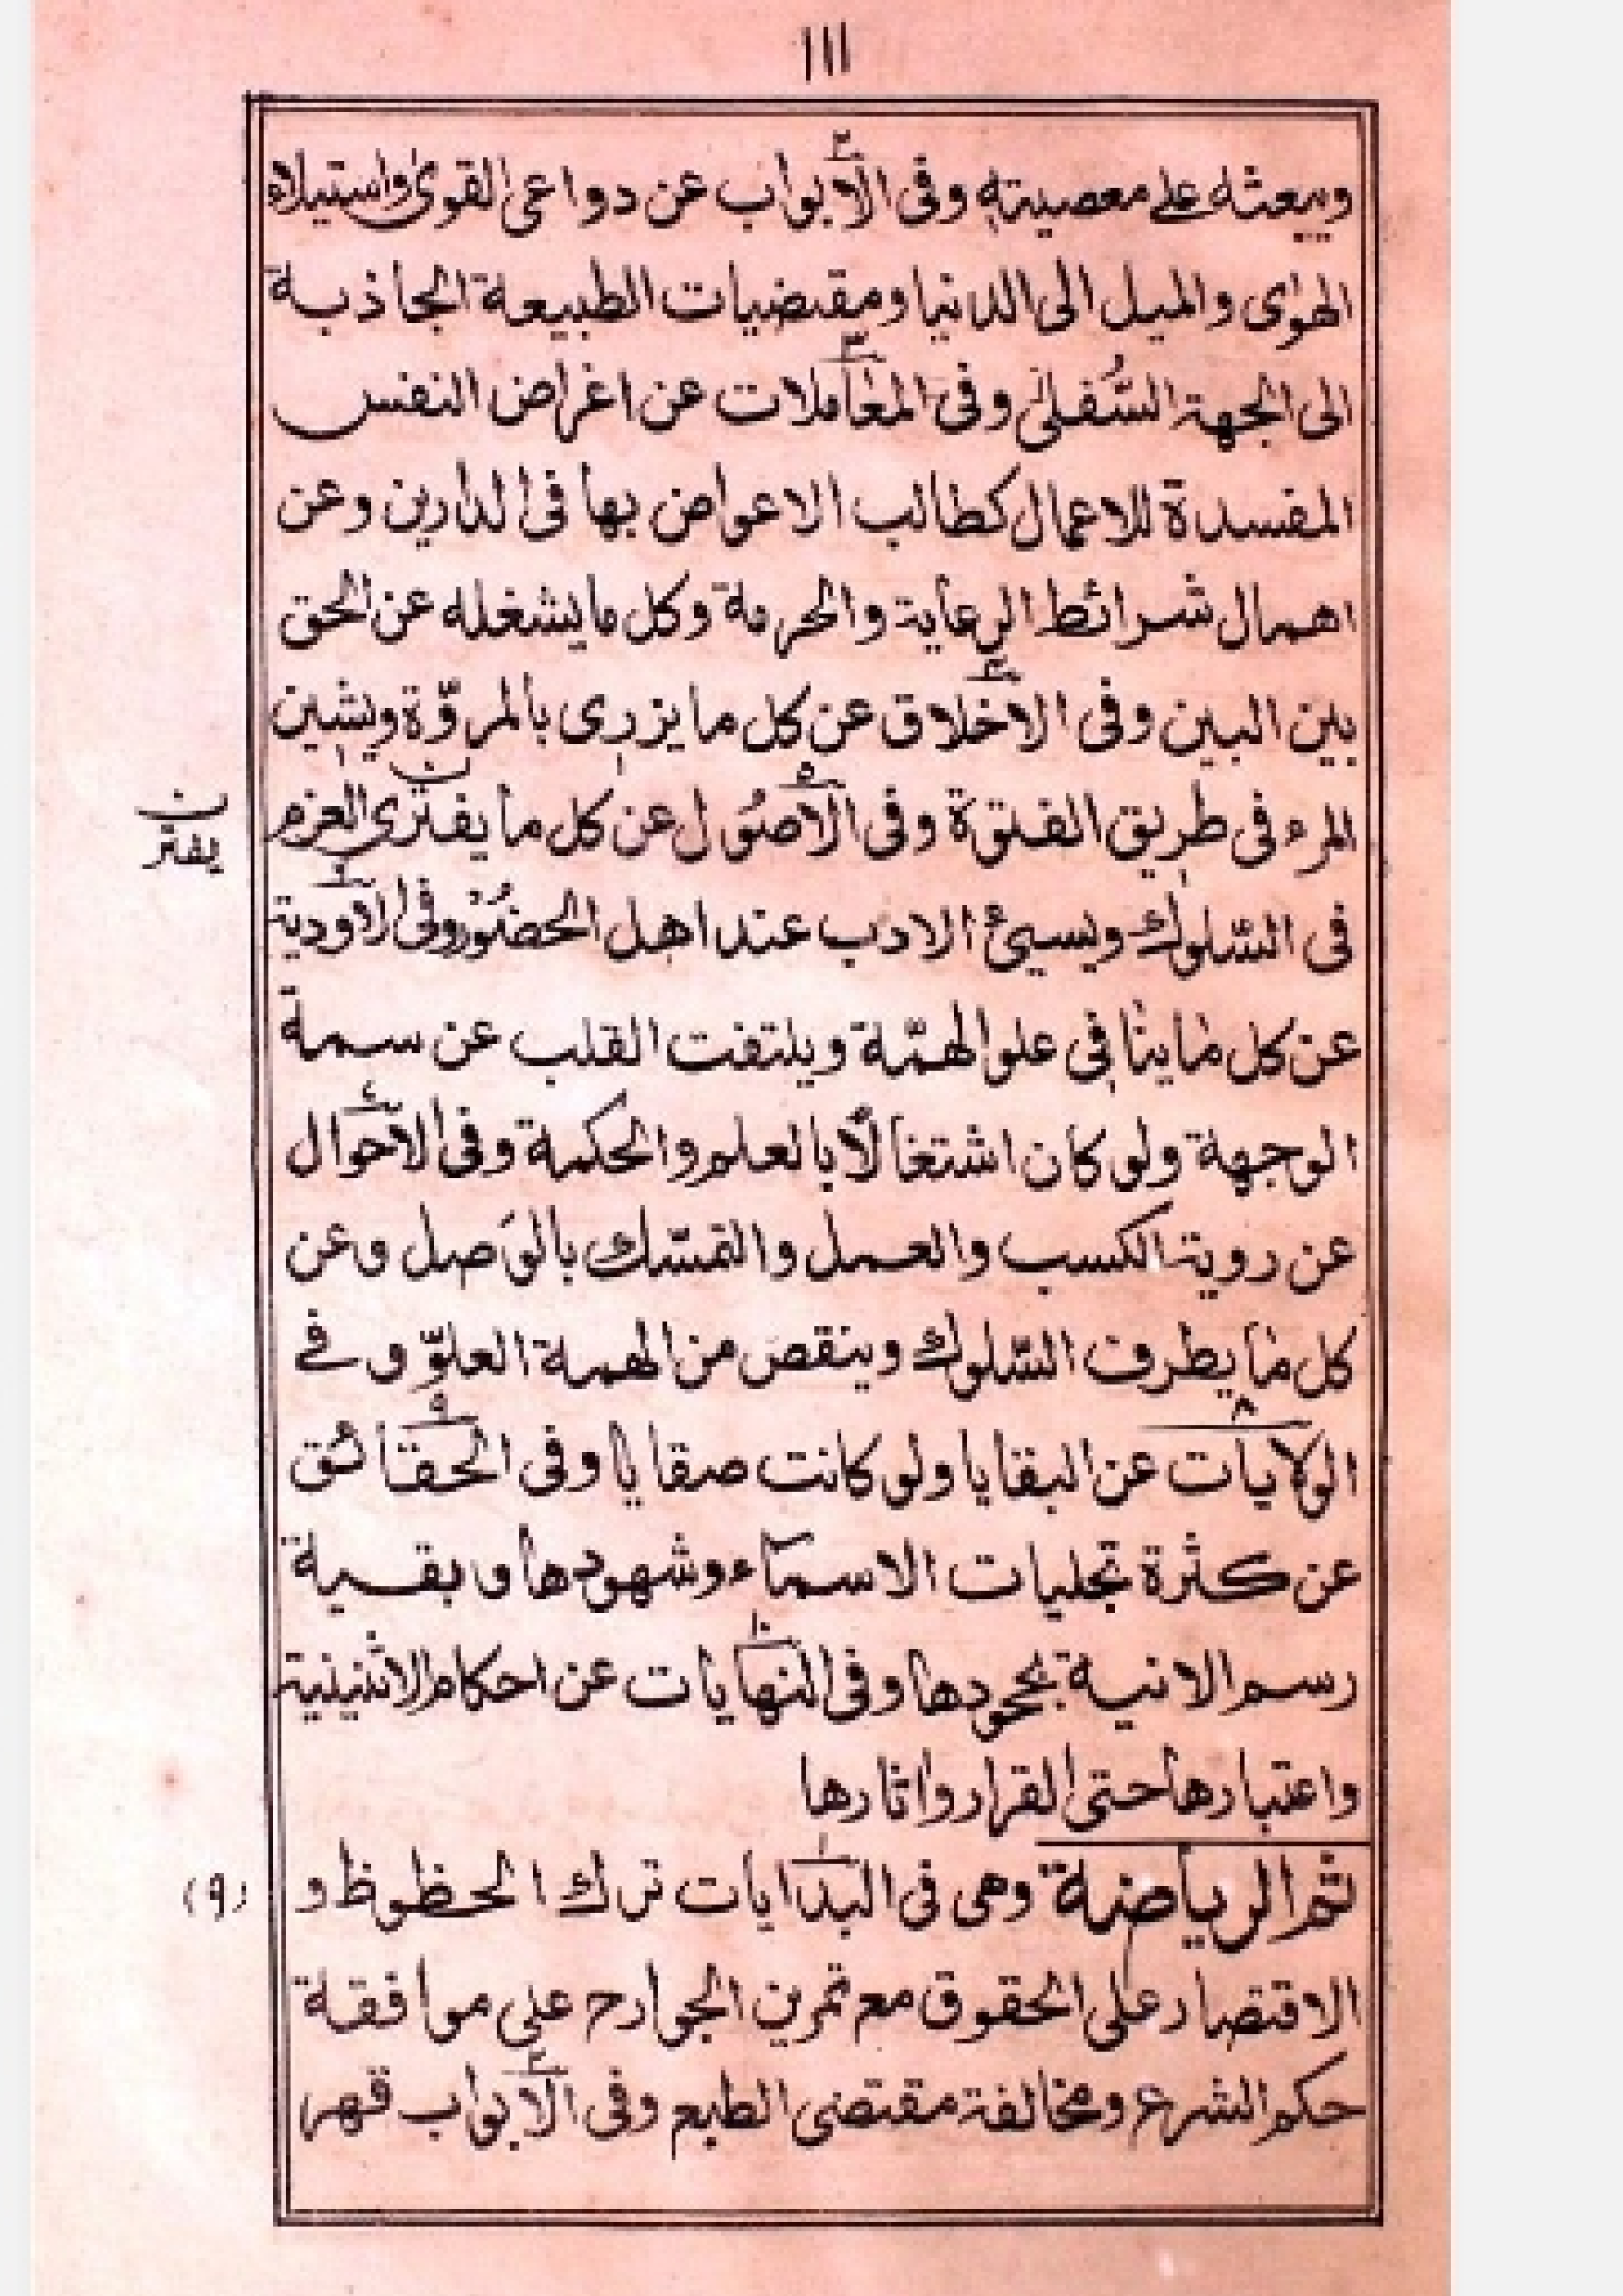 ١١١
ويبعثه على معصيته وفى الابواب عن دواعى القوى واستيلاء
٢
الهوٰى والميل الى الدنيا ومقتضيات الطبيعة الجاذبة
الى الجهة السُّفلى وفى المعاملات عن اغراض النفس
٣
المفسدة للاعمال كطالب الاعواض بها فى الدارين وعن
اهمال شرائط الرعاية والحرمة وكل ما يشغله عن الحق
بين البين وفى الاخلاق عن كل ما يزرى بالمروّة ويشين
٤
المرء فى طريق الفتوة وفى الاصُول عن كل ما يفترى العزم
٥
ن
يفتر
فى السّلوك ويسيئ الادب عند اهل الحضُور وفى الاودية
٦
عن كل ما ينافى علو الهمّة ويلتفت القلب عن سمة
الوجهة ولو كان اشتغالًا بالعلم والحكمة وفى الاحوال
عن روية الكسب والعمل والتمسّك بالوَصل وعن
كل ما يطرف السّلوك وينقص من الهمة العلوّ و فے
الولايات عن البقايا ولو كانت صقايا وفى الحقائق
٨ ٩
عن كثرة تجليات الاسماء وشهودها وابقية
رسم الانية بجحودها وفى النهايات عن احكام الاثنينية
١٠
واعتبارها حتى القرار واثارها
ثم الرياضة وهى فى البدايات ترك الحظوظ و
١
(٩)
الاقتصار على الحقوق مع تمرين الجوارح على موافقة
حكم الشرع ومخالفة مقتضى الطبع وفى الابواب قهر
٢